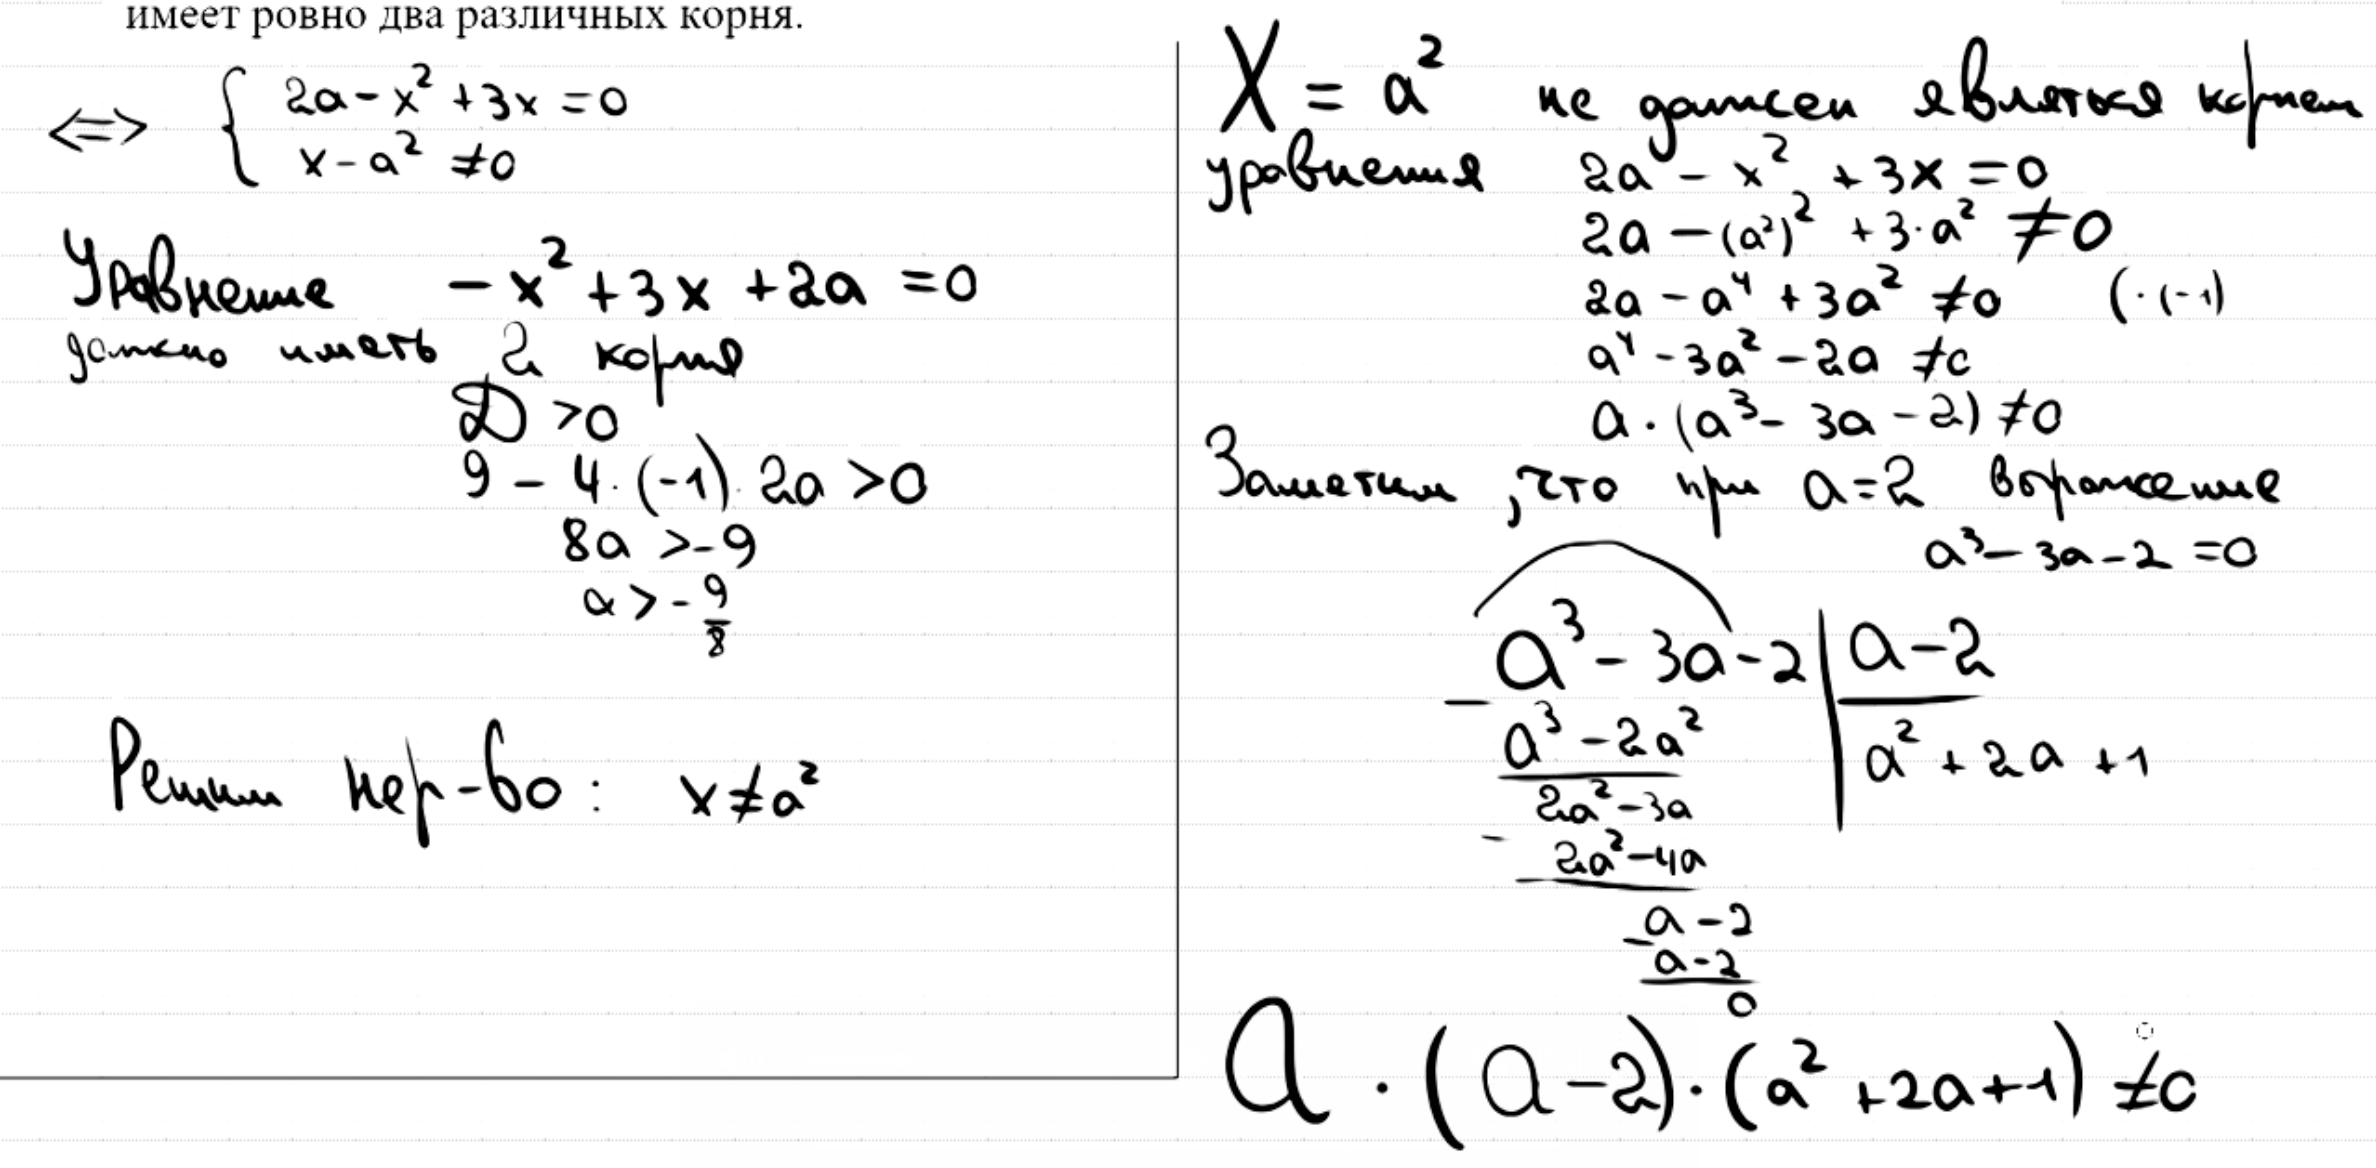 имеет ровно два различных корня.
<=> { 2a - x² + 3x = 0
x - a² ≠ 0
Уравнение -x² + 3x + 2a = 0
должно иметь 2 корня
D > 0
9 - 4 · (-1) · 2a > 0
8a > -9
a > -9/8
Решим нер-во: x ≠ a²
X = a² не должен являться корнем
уравнения 2a - x² + 3x = 0
2a - (a²)² + 3·a² ≠ 0
2a - a⁴ + 3a² ≠ 0 (·(-1)
a⁴ - 3a² - 2a ≠ 0
a · (a³ - 3a - 2) ≠ 0
Заметим, что при a = 2 выражение
a³ - 3a - 2 = 0
a³ - 3a - 2 | a - 2
- a³ - 2a² | a² + 2a + 1
2a² - 3a
- 2a² - 4a
a - 2
- a - 2
0
a · (a - 2) · (a² + 2a + 1) ≠ 0